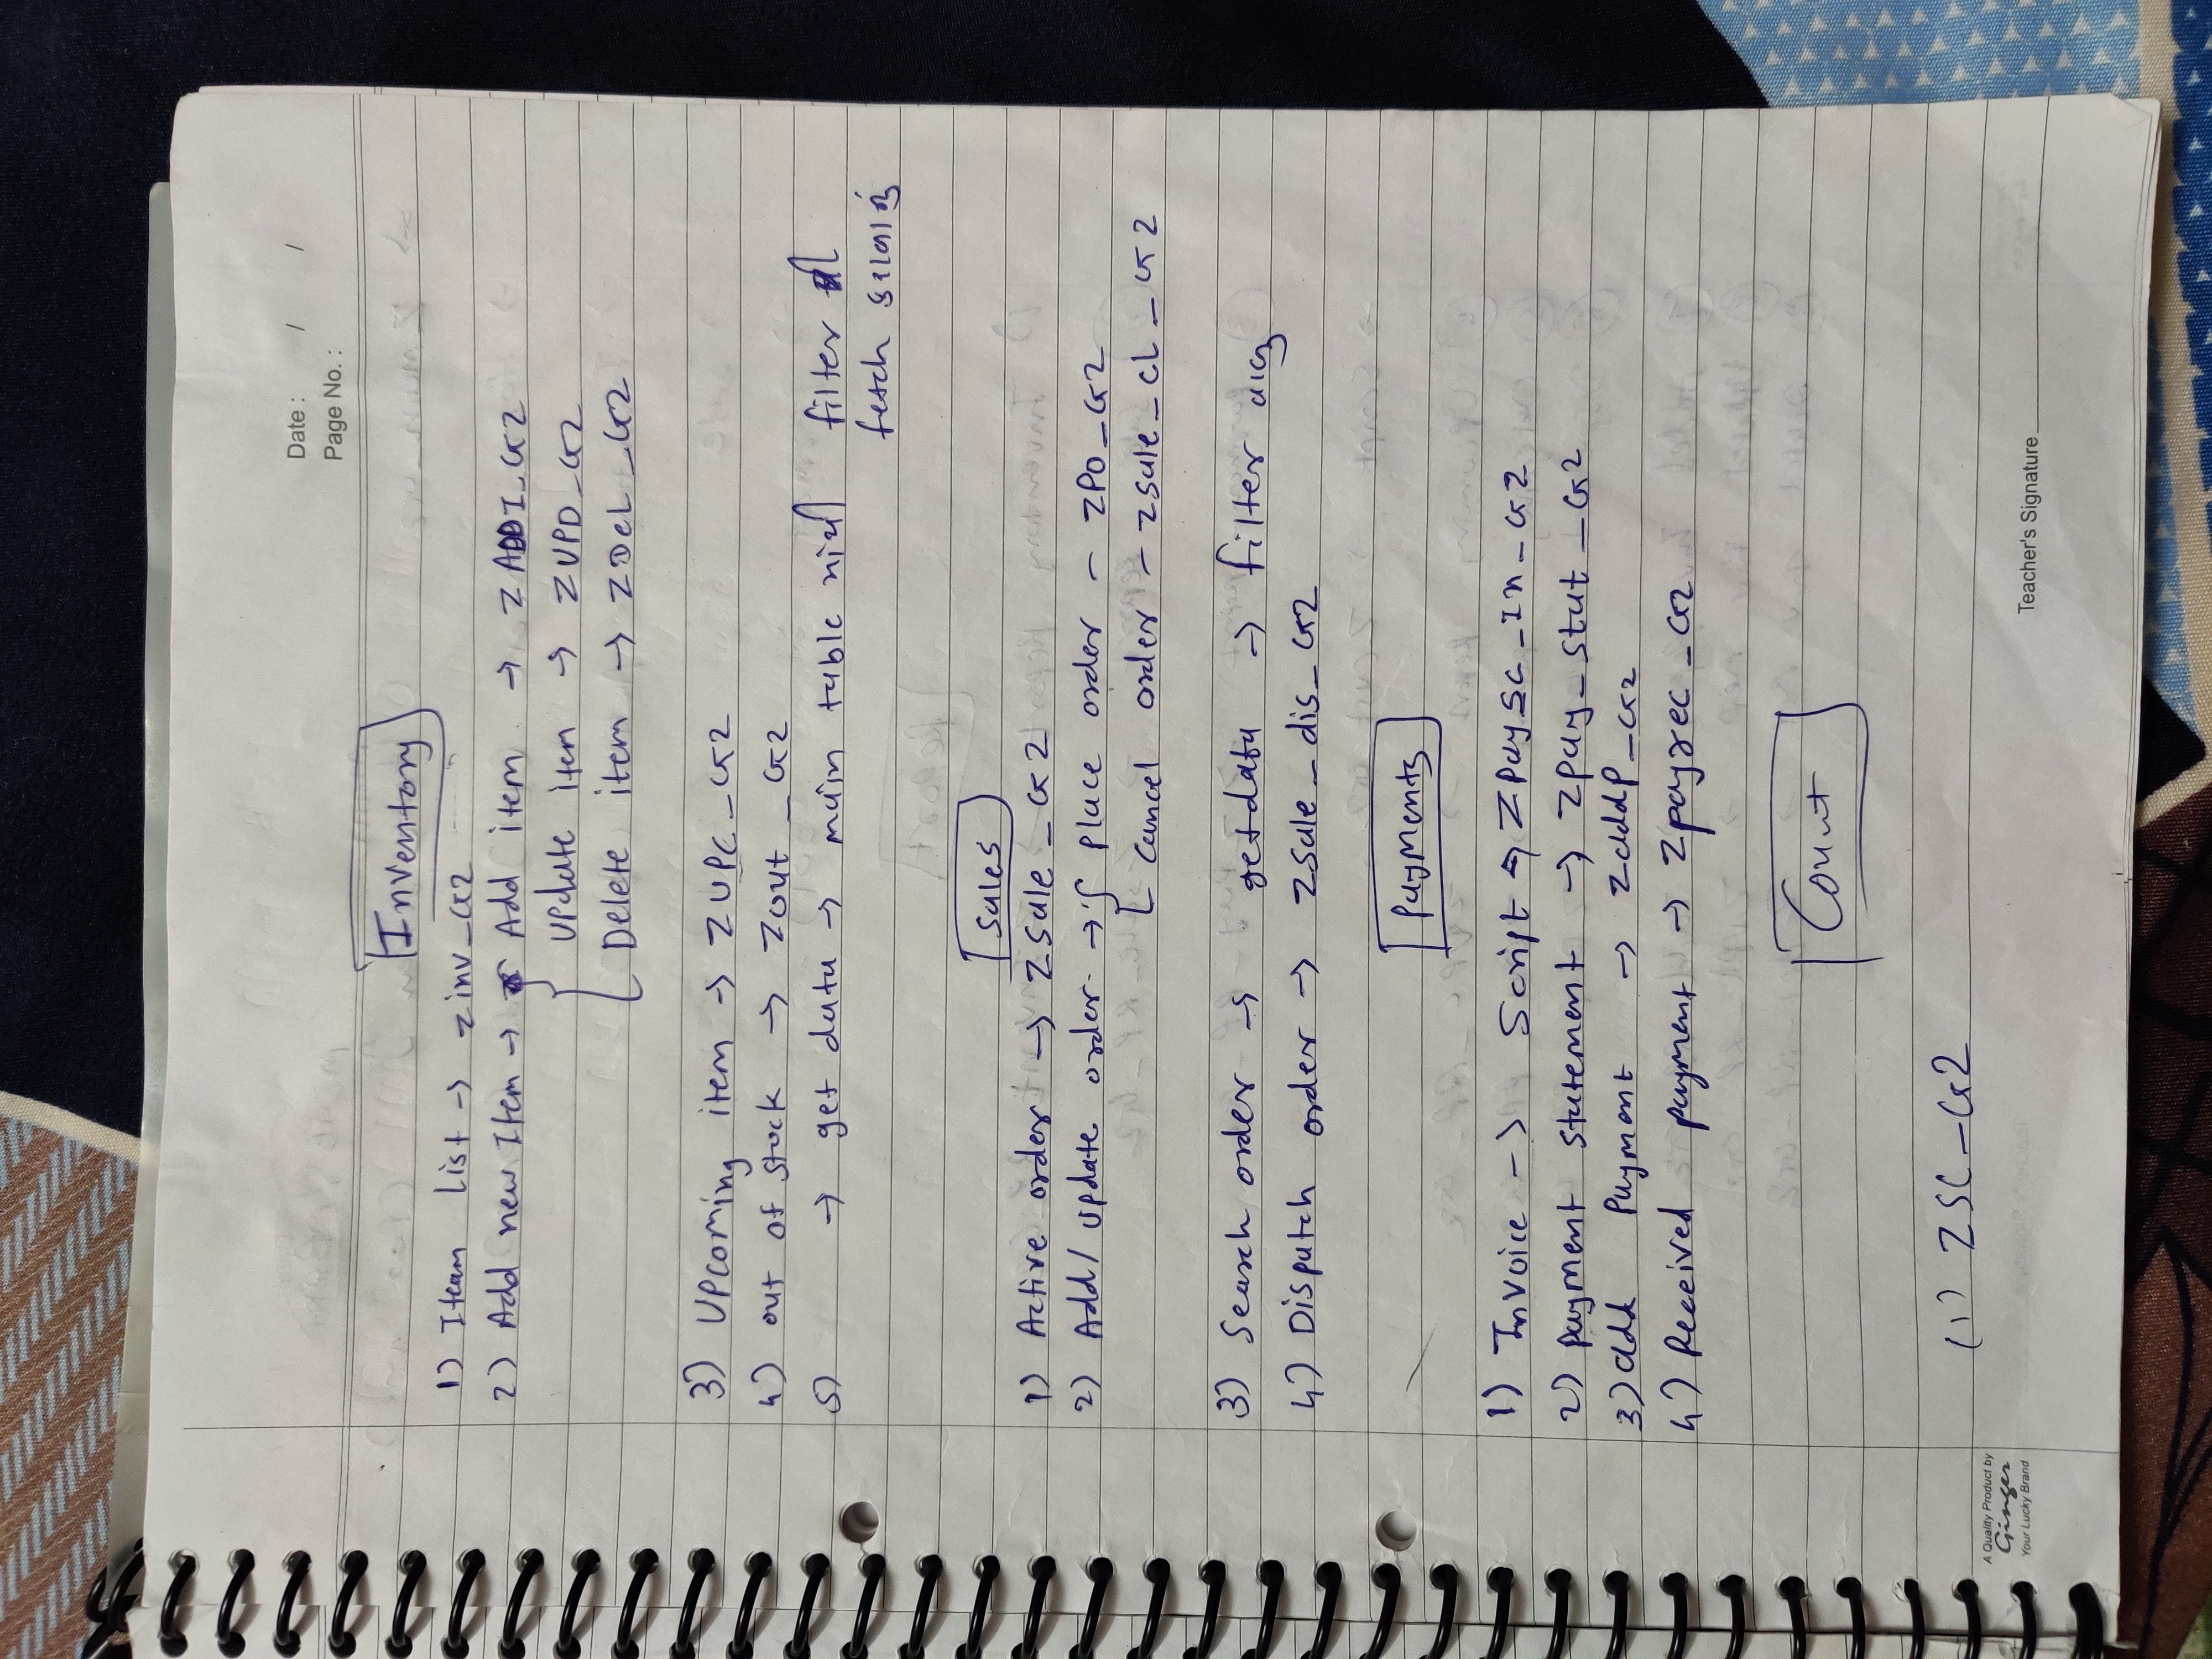 Date :    /    /
Page No. :
Inventory
1) Iteam list → zinv_G2
2) Add new Item → Add item → ZADDI_G2
Update item → ZUPD_G2
Delete item → ZDeL_G2
3) Upcoming item → ZUPC_G2
4) out of stock → Zout_G2
5) → get data → main table માંથી filter
fetch કરવાનું
Sales
1) Active order → Zsale_G2
2) Add/update order → { place order – ZPO_G2
cancel order – zsale_cL_G2
3) Search order → getdata → filter
4) Dispatch order → Zsale_dis_G2
Payments
1) Invoice -> Script → Zpaysc_In_G2
2) payment statement → Zpay_stat_G2
3) add Payment → ZaddP_G2
4) Received payment → Zpayrec_G2
Count
(1) ZSC_G2
A Quality Product by
Ginger
Your Lucky Brand
Teacher's Signature